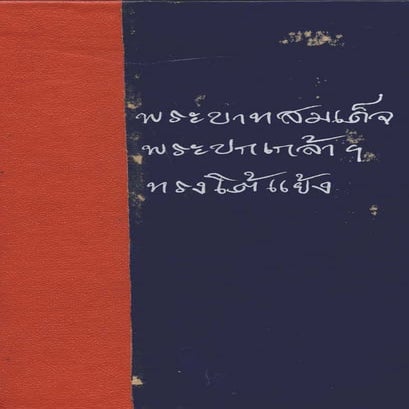 พระบาทสมเด็จ
พระปกเกล้าฯ
ทรงโต้แย้ง